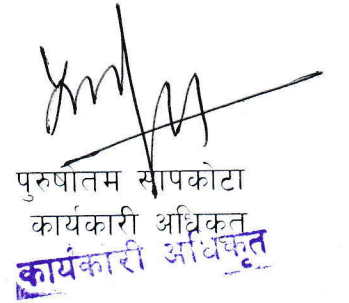 पुरुषोतम सापकोटा
कार्यकारी अधिकृत
कार्यकारी अधिकृत